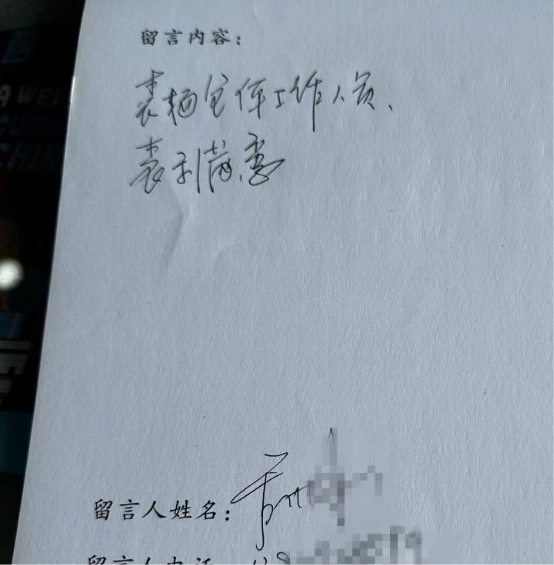 留言内容：
表扬全体工作人员、
表示满意
留言人姓名：
留言人电话